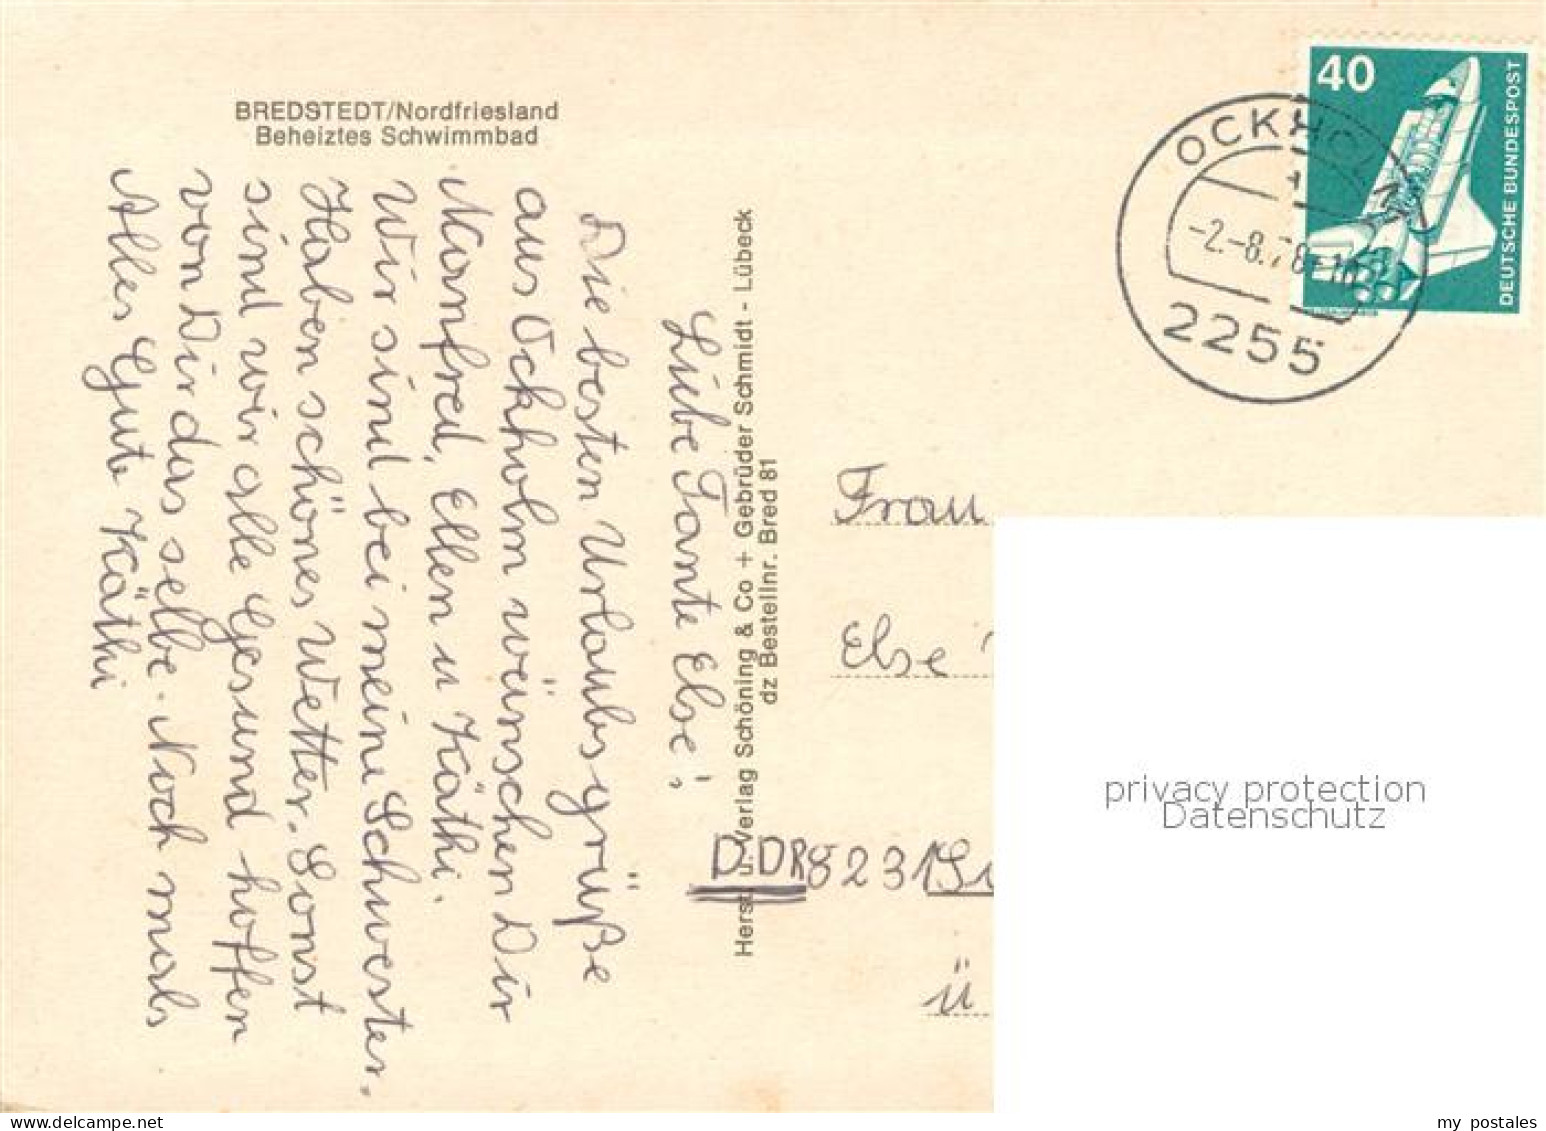 BREDSTEDT/Nordfriesland
Beheiztes Schwimmbad
Liebe Tante Else!
Die besten Urlaubsgrüße
aus Ockholm wünschen Dir
Manfred, Ellen u Käthi.
Wir sind bei meine Schwester.
Haben schönes Wetter. Sonst
sind wir alle Gesund hoffen
von Dir das selbe. Noch mals
Alles Gute Käthi
Herst. u. Verlag Schöning & Co + Gebrüder Schmidt - Lübeck
dz Bestellnr. Bred 81
40
DEUTSCHE BUNDESPOST
OCKHOLM
-2.-8.78-
2255
Frau
Else
DDR 8231
ü
privacy protection
Datenschutz
my postales